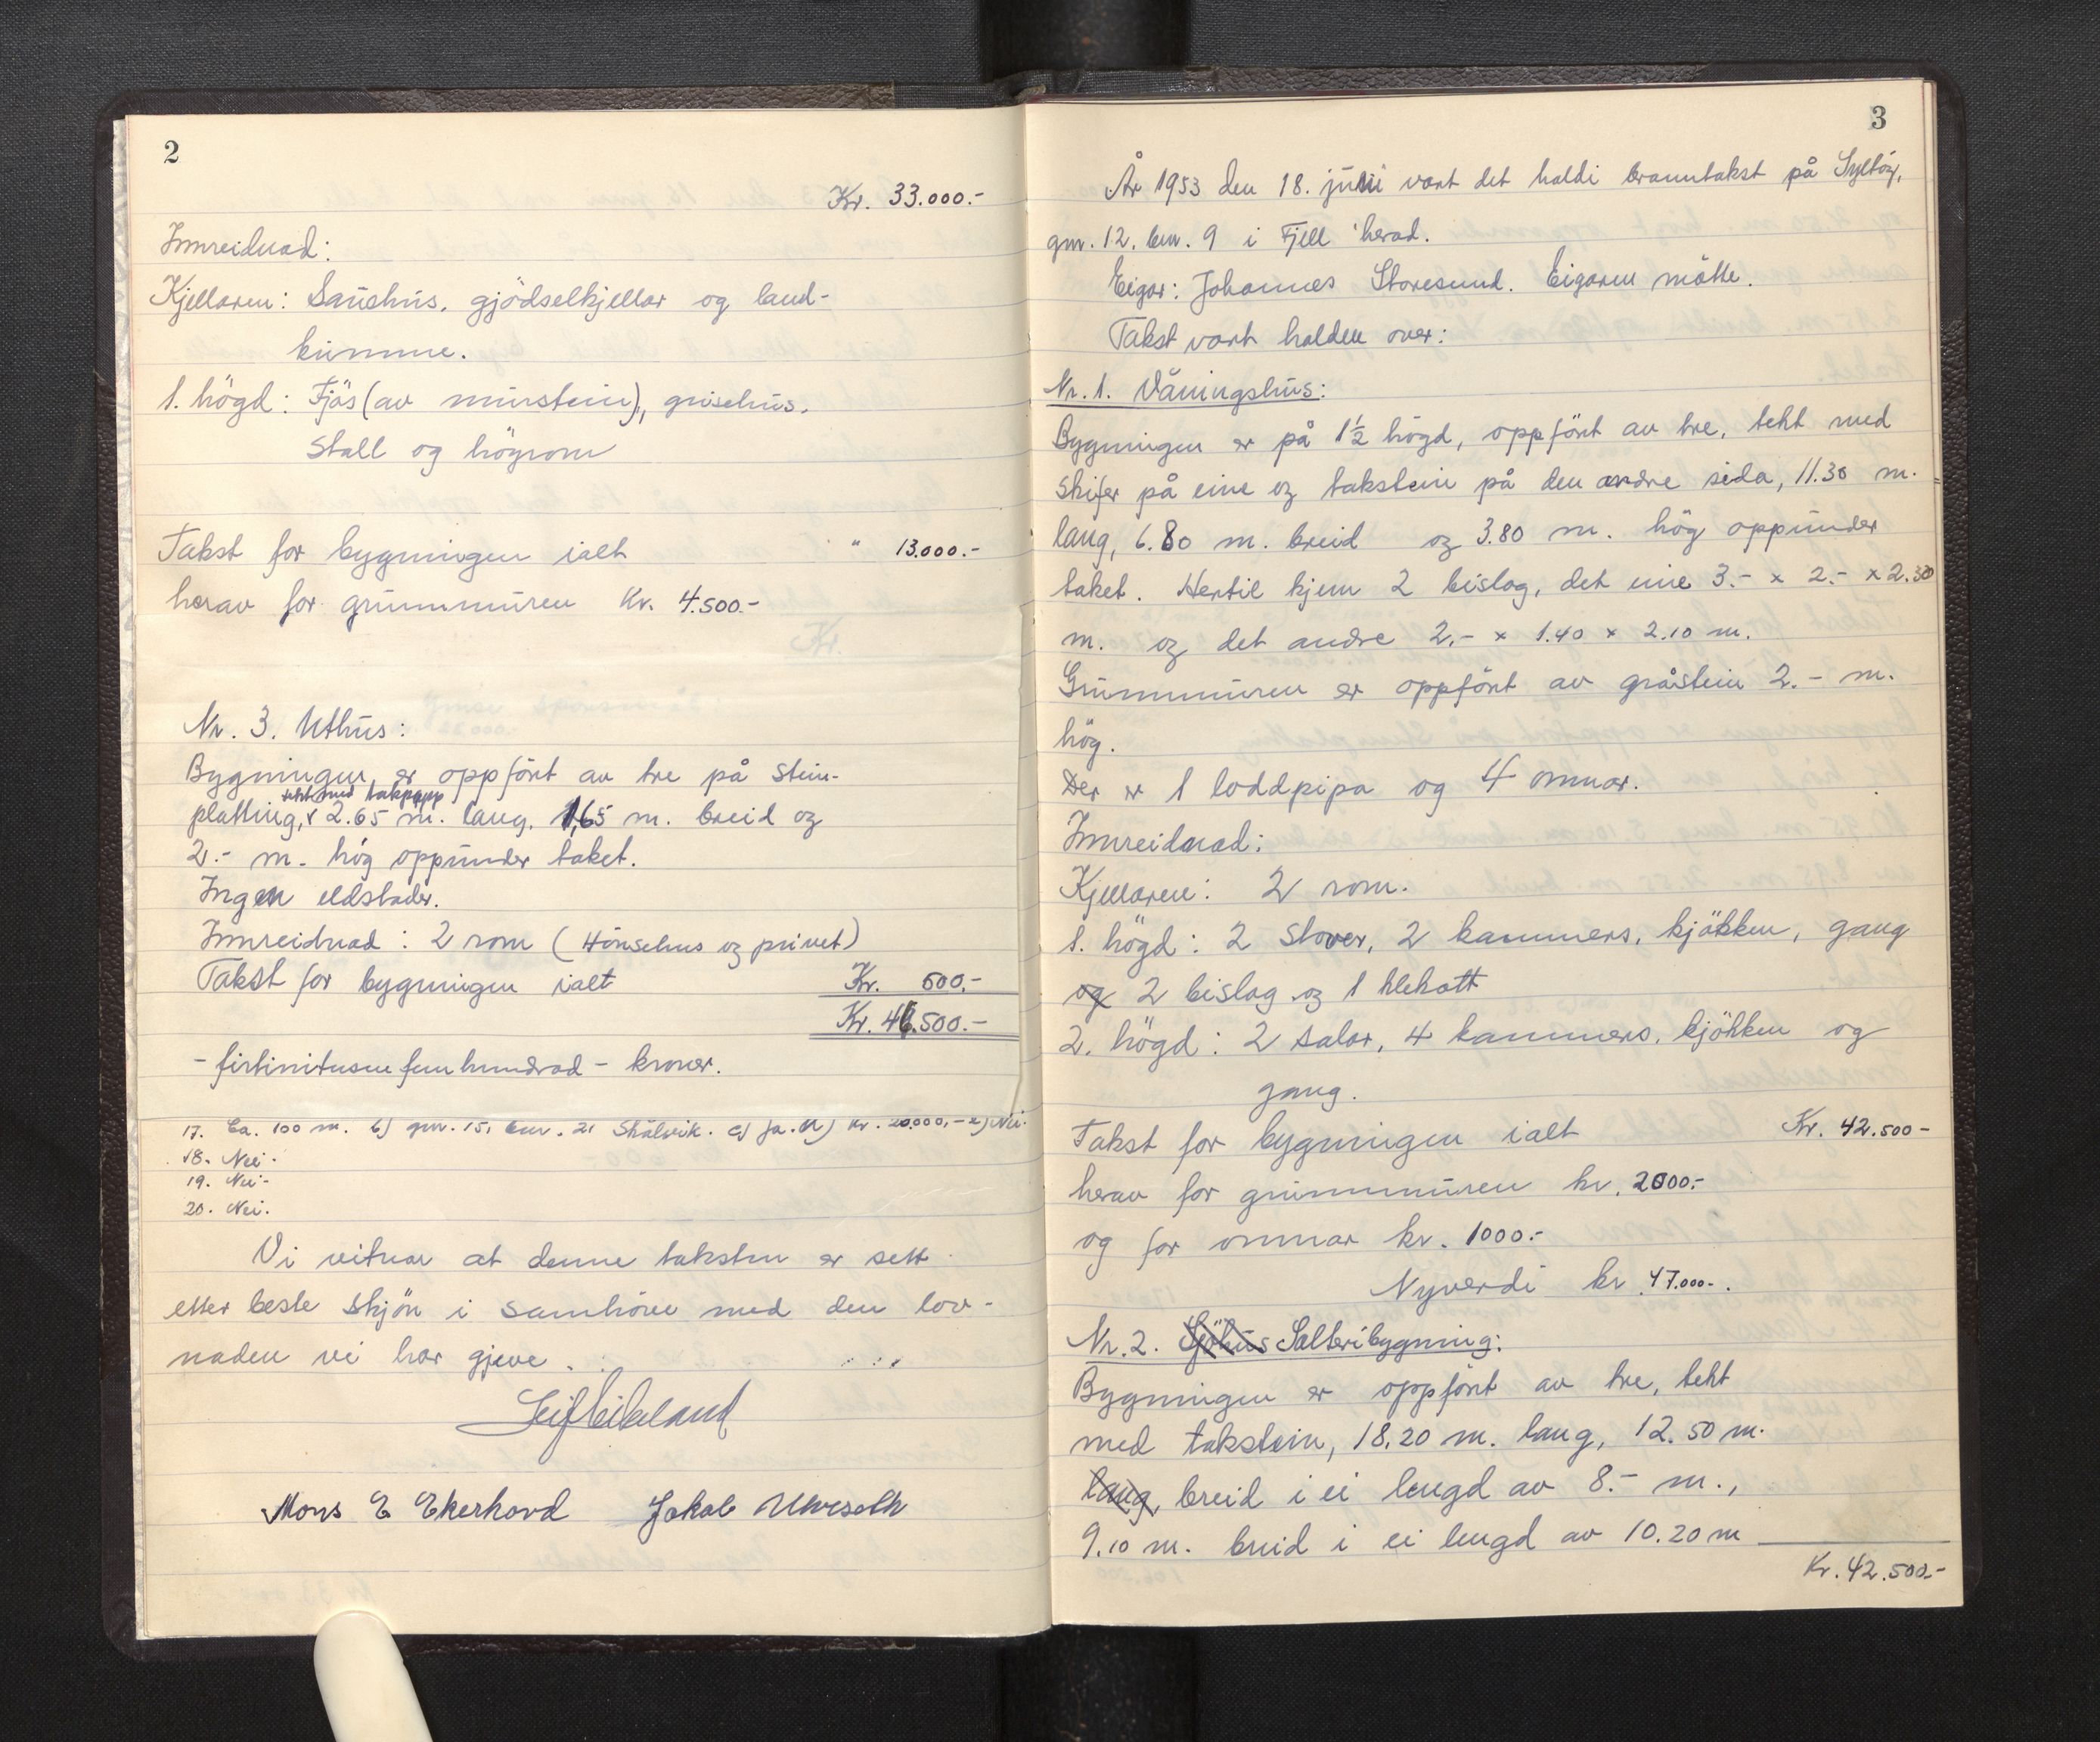 2
Kr. 33.000.-
Innreidnad:
Kjellaren: Sauehus, gjödselkjellar og land-
kumme.
1. högd: Fjös (av murstein), grisehus,
stall og högrom
Takst for bygningen ialt " 13.000.-
herav for grunnmuren kr. 4.500.-
Nr. 3. Uthus:
Bygningen er oppfört av tre på stein-
tekt med takpapp
platting, v 2.65 m. lang, 1,65 m. breid og
2.- m. hög oppunder taket.
Ingen eldstader.
Innreidnad: 2 rom (Hönsehus og privet)
Takst for bygningen ialt Kr. 500.-
Kr. 46.500.-
- førtinitusen fem hundrad - kroner.
17. Ca. 100 m. b) gnr. 15, bnr. 21 Skålvik. c) Ja. d) kr. 20.000,- e) Nei.
18. Nei.
19. Nei.
20. Nei.
Vi vitnar at denne taksten er sett
etter beste skjön i samhöve med den lov-
naden vi har gjeve.
Mons E Ekerhovd Jakob Ulveseth
3
År 1953 den 18. juni vart det haldi branntakst på Syltöy,
gnr. 12, bnr. 9 i Fjell herad.
Eigar: Johannes Storesund. Eigaren mötte.
Takst vart halden over:
Nr. 1. Våningshus:
Bygningen er på 1½ högd, oppfört av tre, tekt med
skifer på eine og takstein på den andre sida, 11.30 m.
lang, 6.80 m. breid og 3.80 m. hög oppunder
taket. Hertil kjem 2 bislag, det eine 3.- x 2.- x 2.30
m. og det andre 2.- x 1.40 x 2.10 m.
Grunnmuren er oppfört av gråstein 2.- m.
hög.
Der er 1 loddpipa og 4 omnar.
Innreidnad:
Kjellaren: 2 rom.
1. högd: 2 stover, 2 kammers, kjökken, gang
og 2 bislag og 1 klekott
2. högd: 2 salar, 4 kammers, kjökken og
gang.
Takst for bygningen ialt Kr. 42.500-
herav for grunnmuren kr. 2000.-
og for omnar kr. 1000.-
Nyverdi kr. 47.000.-.
Nr. 2. Sjöhus Salteribygning:
Bygningen er oppfört av tre, tekt
med takstein, 18.20 m. lang, 12.50 m.
lang, breid i ei lengd av 8.- m.,
9.10 m. breid i ei lengd av 10.20 m
Kr. 42.500.-